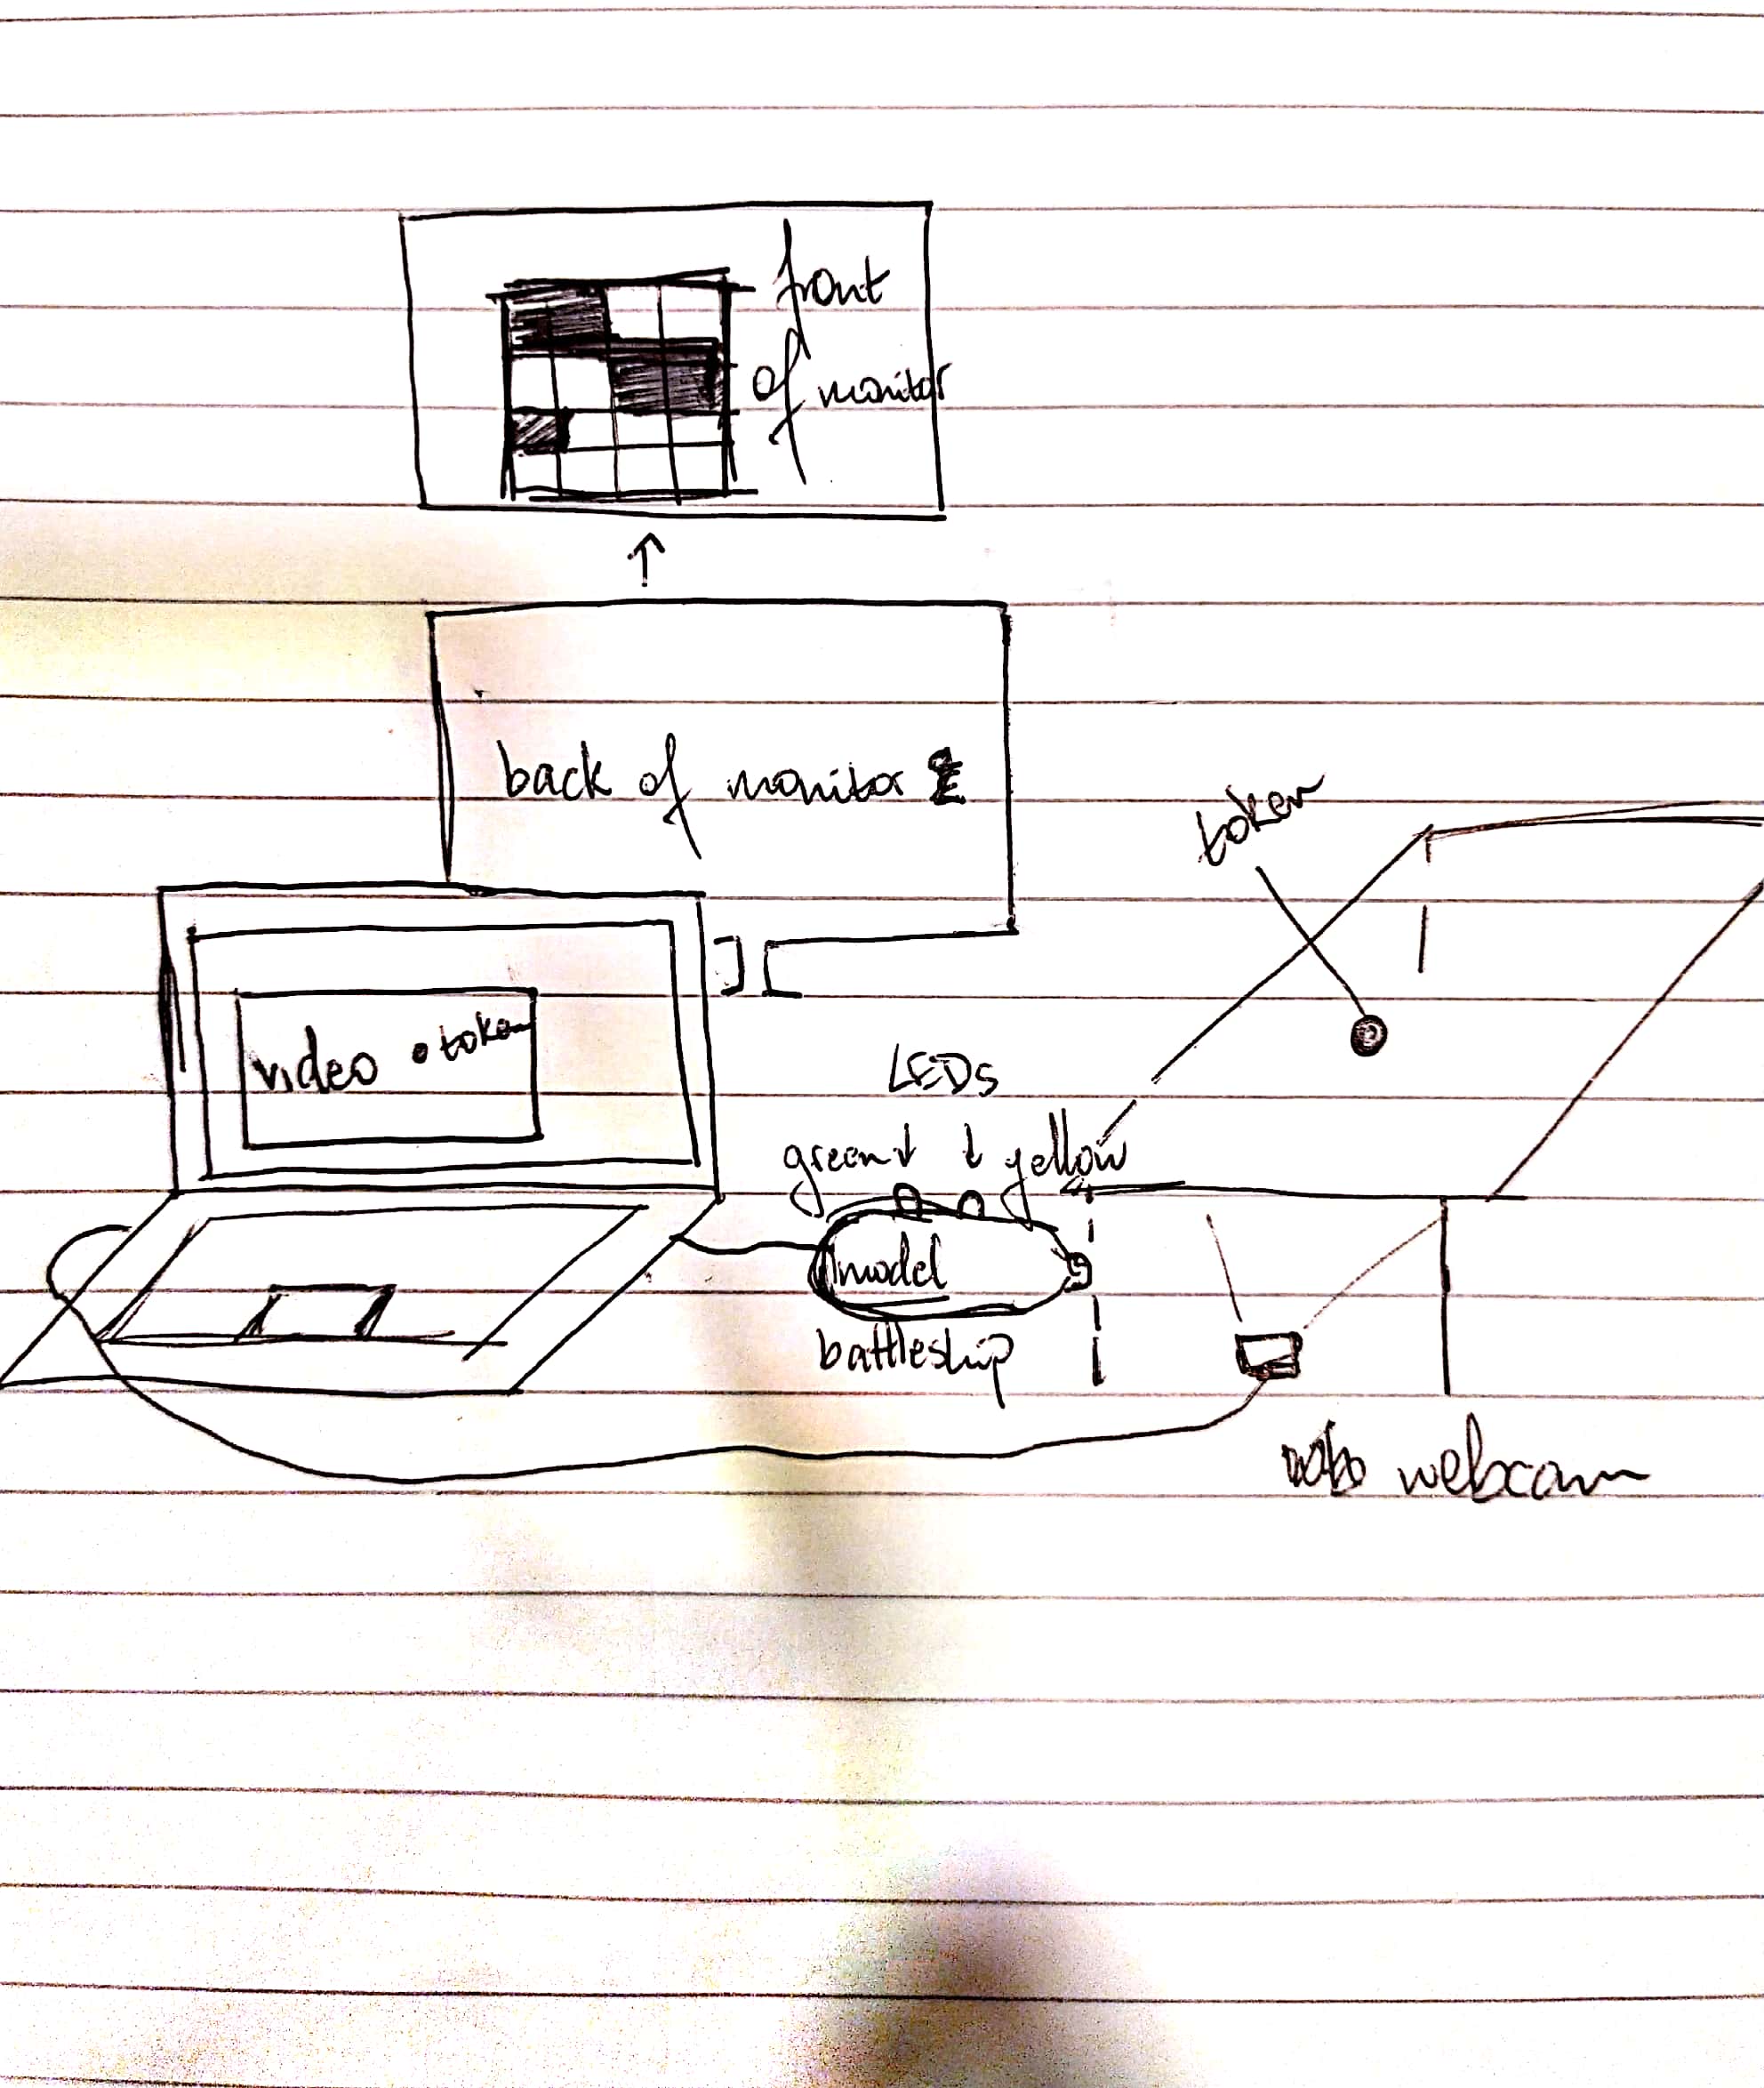 front
of monitor
back of monitor
token
video • token
LEDs
green ↓ ↓ yellow
model
battleship
webcam